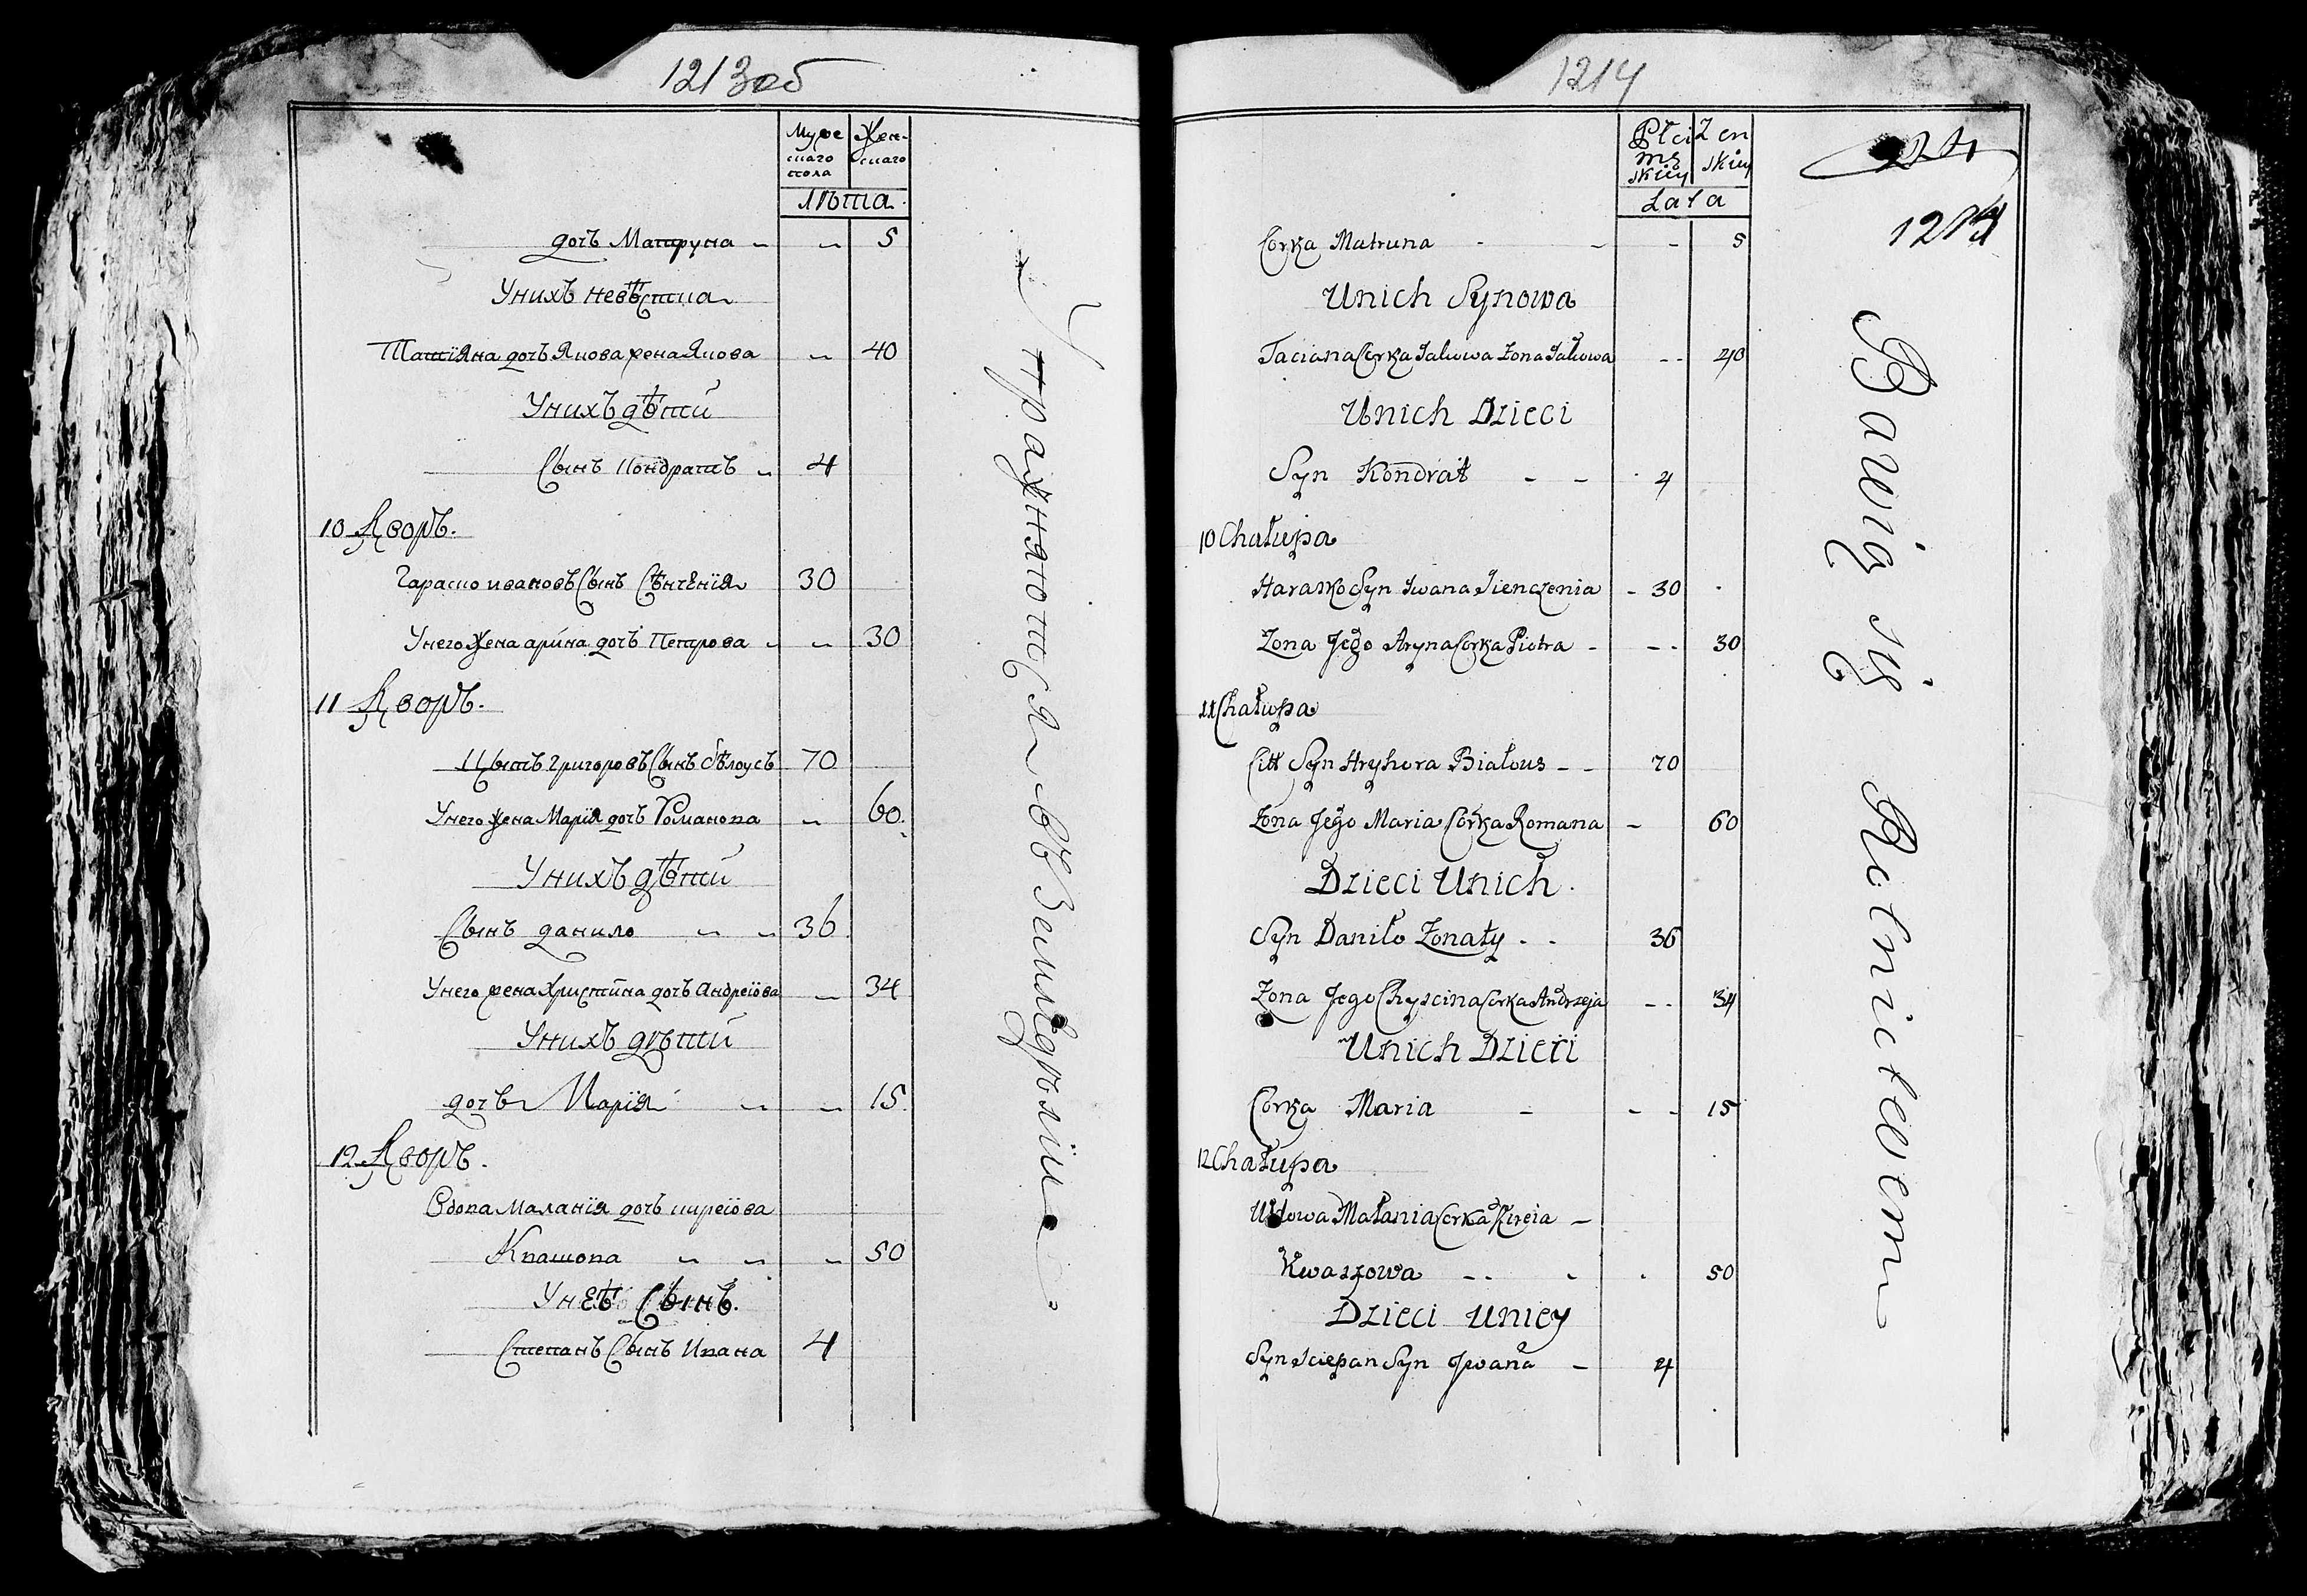 1213об
Муже Жен-
скаго скаго
пола
лѣта
дочь Матруна 5
Унихъ невѣстка
Татіяна дочъ Якова жена Якова 40
Унихъ дѣти
Сынъ Кондратъ 4
10 Дворъ.
Гараско ивановъ Сынъ Сѣнченія 30
Унего жена арина дочъ Петрова 30
11 Дворъ.
Цытъ Григоровъ Сынъ бѣлоусъ 70
Унего жена Марія дочъ Романова 60
Унихъ дѣти
Сынъ данило 36
Унего жена Христина дочъ андреіова 34
Унихъ дѣти
дочь Марія 15
12 Дворъ.
Вдова Маланія дочъ киреіова
Квашова 50
Унеѣ Сынъ.
Степанъ Сынъ Ивана 4
Упражняются въ Земледѣліи
1214
Płci Zen
męskiey skiey
Lata
24
1214
Corka Matruna 5
Unich Synowa
Taciana Corka Jakowa Zona Jakowa 40
Unich Dzieci
Syn Kondrat 4
10 Chałupa
Harasko Syn Iwana Sienczenia 30
Zona Jego Aryna Corka Piotra 30
11 Chałupa
Citt Syn Hryhora Białous 70
Zona Jego Maria Corka Romana 60
Dzieci Unich.
Syn Daniło Zonaty 36
Zona Jego Chyscina Corka Andrzeja 34
Unich Dzieci
Corka Maria 15
12 Chałupa
Wdowa Małania Corka Kireia
Kwaszowa 50
Dzieci Uniey
Syn Sciepan Syn Jwana 4
Bawią się Rolnictwem